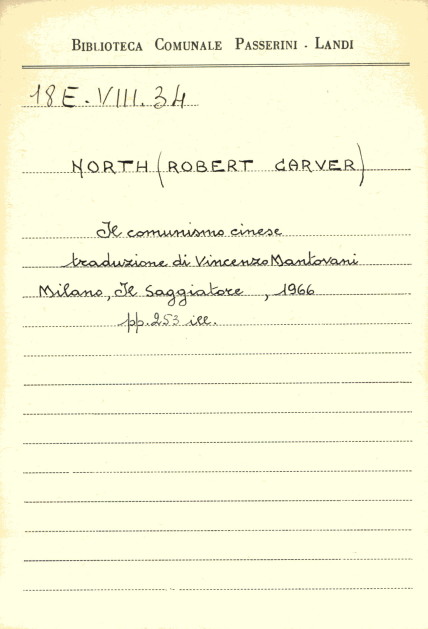 BIBLIOTECA COMUNALE PASSERINI - LANDI
18E. VIII. 34
NORTH (ROBERT CARVER)
Il comunismo cinese
traduzione di Vincenzo Mantovani
Milano, Il Saggiatore , 1966
pp. 253 ill.